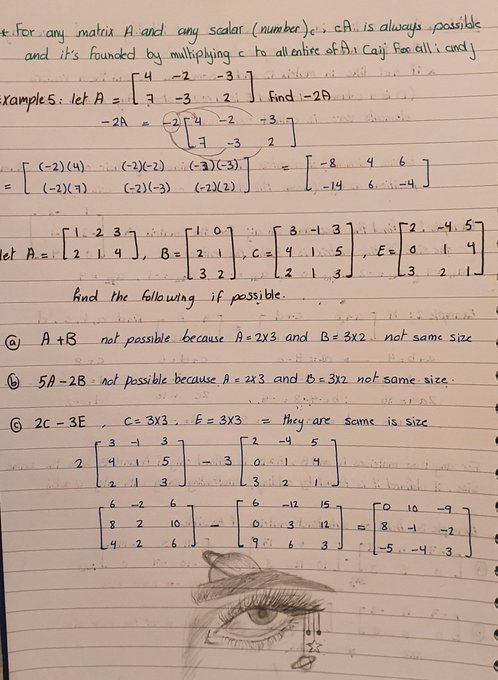 * For any matrix A and any scalar (number) c, cA is always possible
and it's founded by multiplying c to all entire of A, Caij for all i and j
Example 5: let A = [ 4 -2 -3 ; 7 -3 2 ] find -2A
-2A = -2 [ 4 -2 -3 ; 7 -3 2 ]
= [ (-2)(4) (-2)(-2) (-2)(-3) ; (-2)(7) (-2)(-3) (-2)(2) ] = [ -8 4 6 ; -14 6 -4 ]
let A = [ 1 2 3 ; 2 1 4 ], B = [ 1 0 ; 2 1 ; 3 2 ], C = [ 3 -1 3 ; 4 1 5 ; 2 1 3 ], E = [ 2 -4 5 ; 0 1 4 ; 3 2 1 ]
find the following if possible.
(a) A + B not possible because A = 2x3 and B = 3x2 not same size
(b) 5A - 2B not possible because A = 2x3 and B = 3x2 not same size.
(c) 2C - 3E, C = 3x3, E = 3x3 = they are same is size
2 [ 3 -1 3 ; 4 1 5 ; 2 1 3 ] - 3 [ 2 -4 5 ; 0 1 4 ; 3 2 1 ]
[ 6 -2 6 ; 8 2 10 ; 4 2 6 ] - [ 6 -12 15 ; 0 3 12 ; 9 6 3 ] = [ 0 10 -9 ; 8 -1 -2 ; -5 -4 3 ]